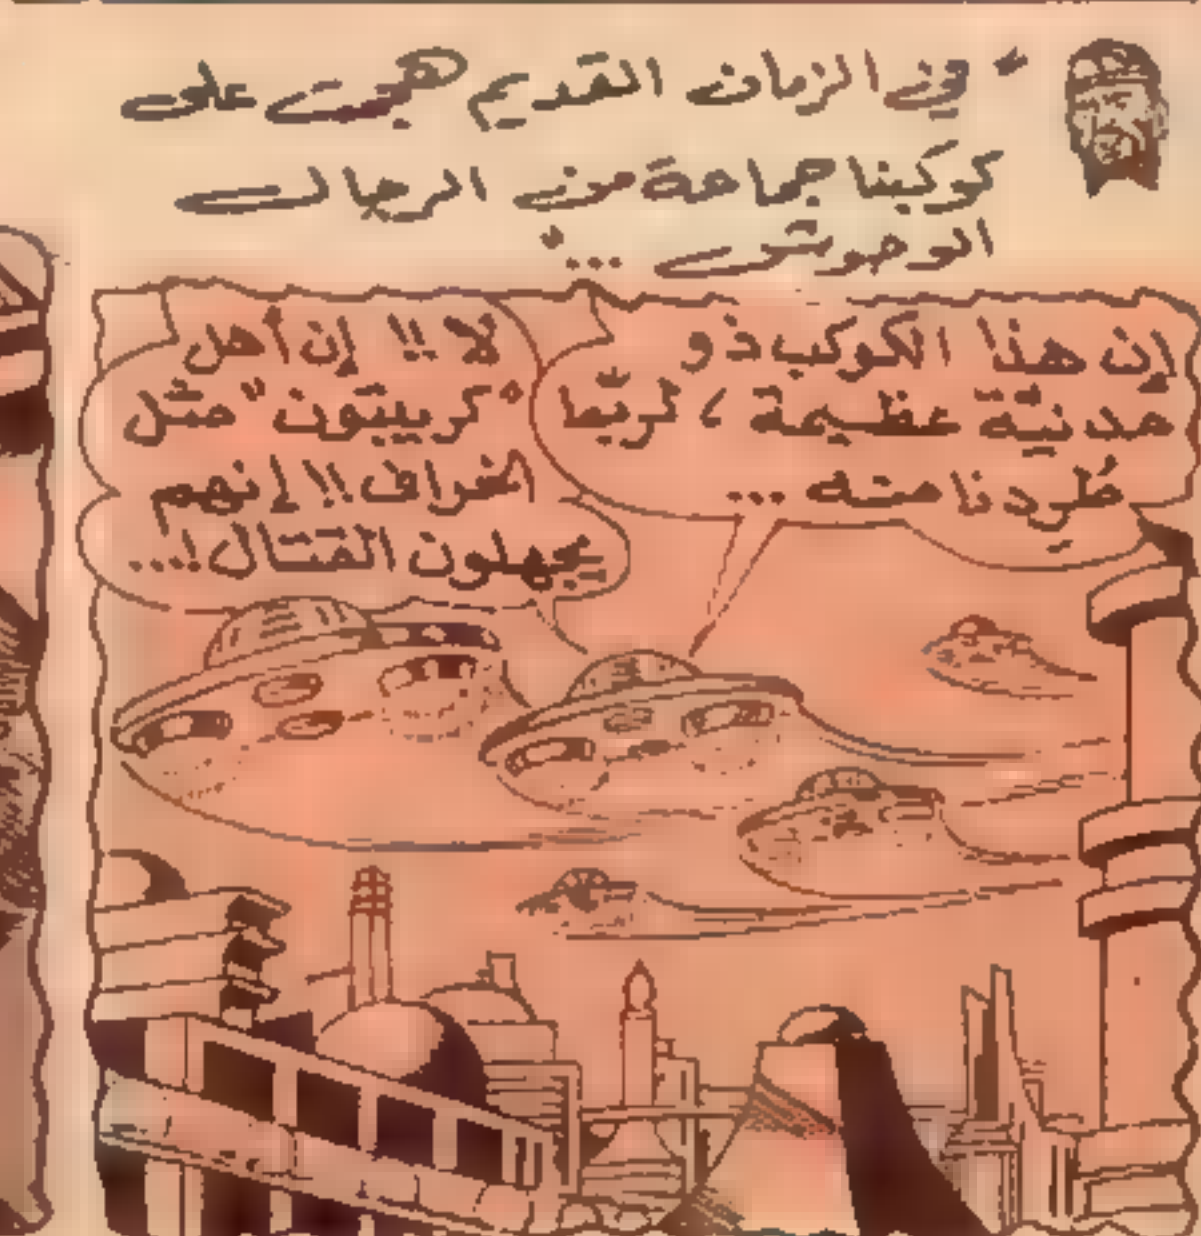 "في الزمان القديم هجمت على
كوكبنا جماعة من الرجال
الوحوش ..."
إن هذا الكوكب ذو
مدنيّة عظيمة ، لربّما
طُردنا منه ...
لا !! إن أهل
"كريبتون" مثل
الخراف !! إنهم
يجهلون القتال !...